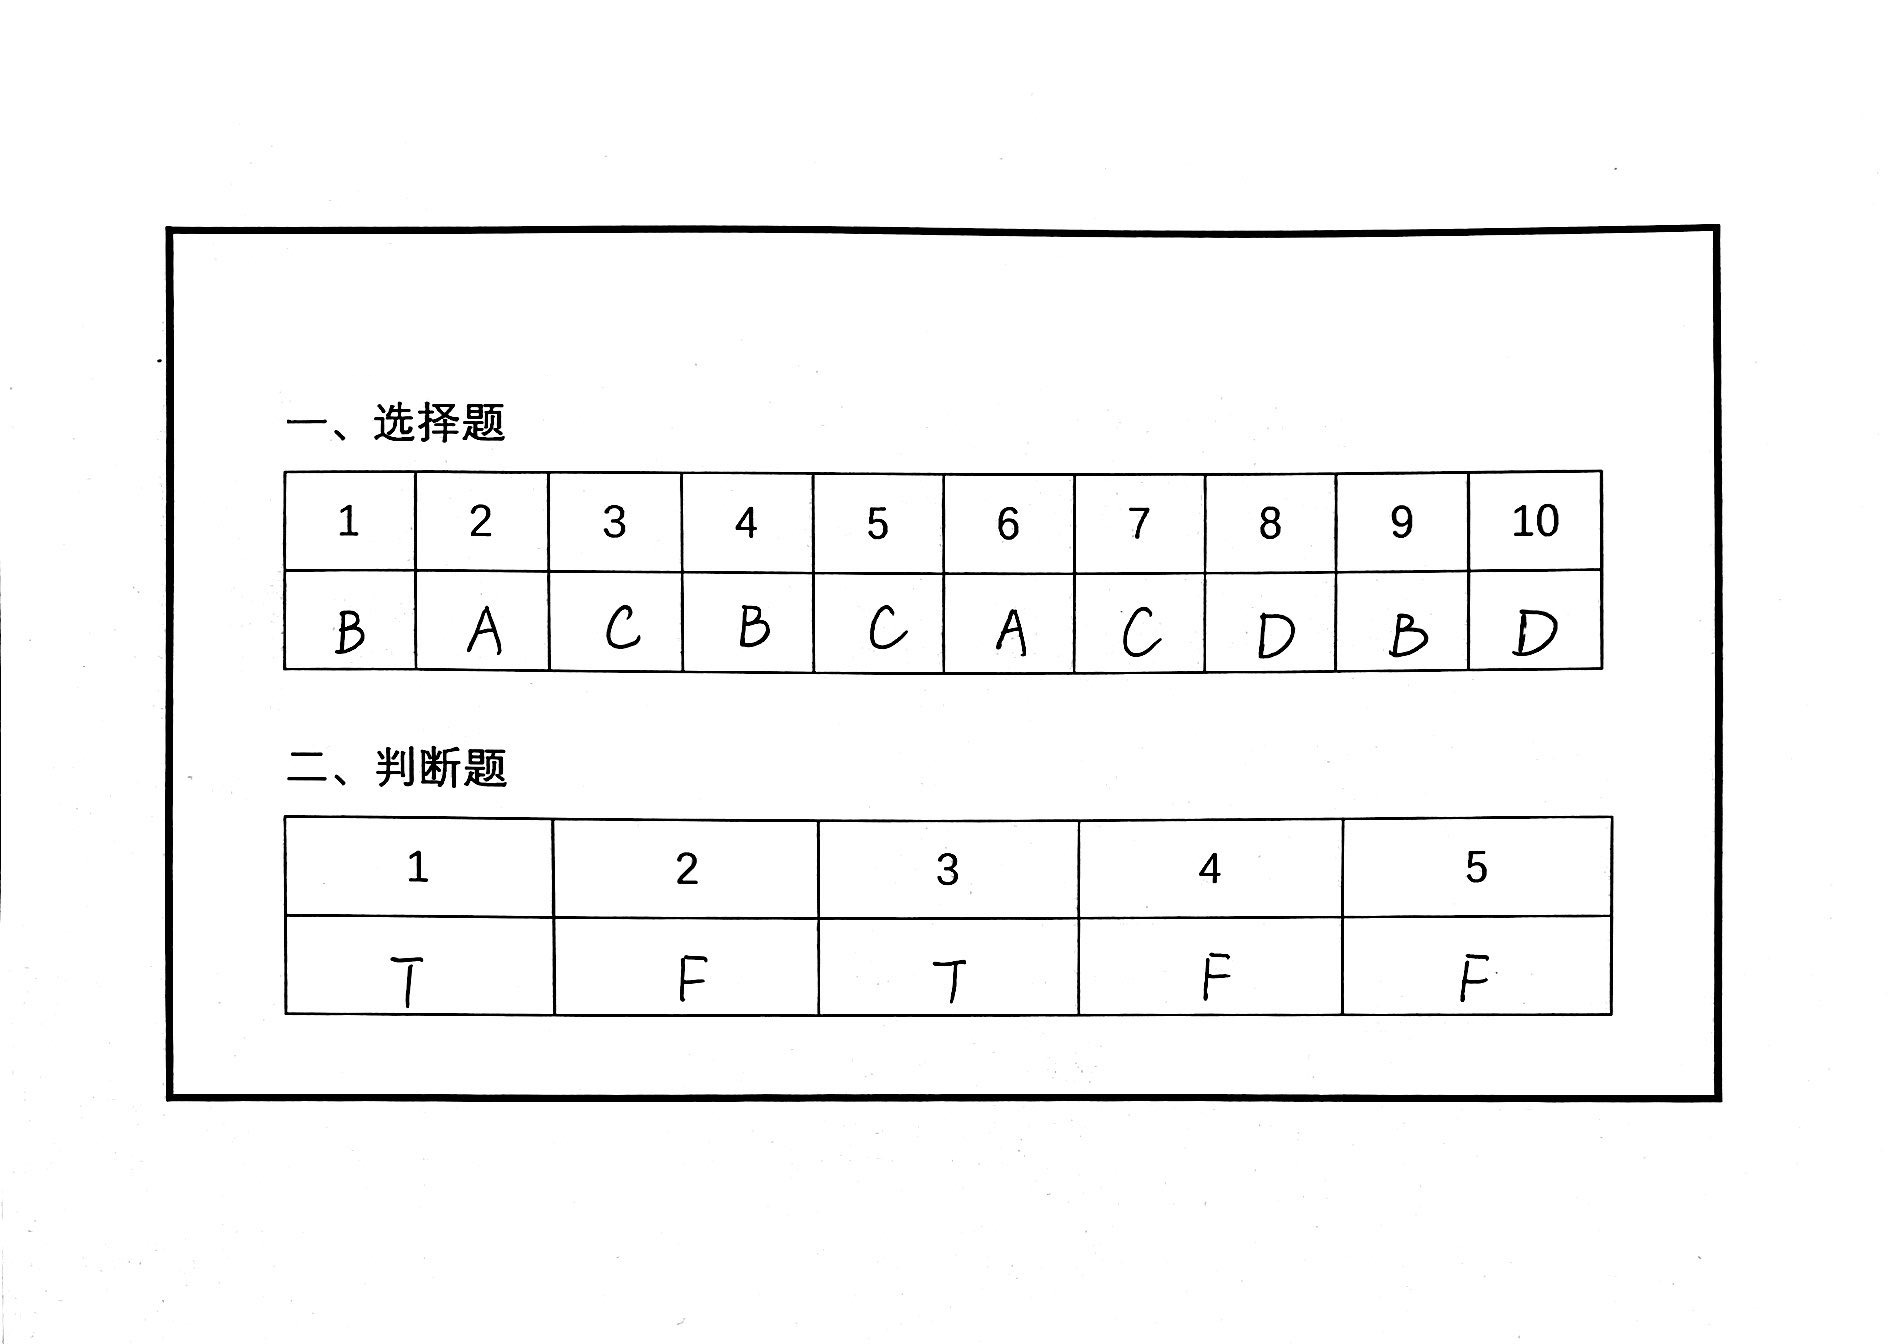 一、选择题
1 2 3 4 5 6 7 8 9 10
B A C B C A C D B D
二、判断题
1 2 3 4 5
T F T F F